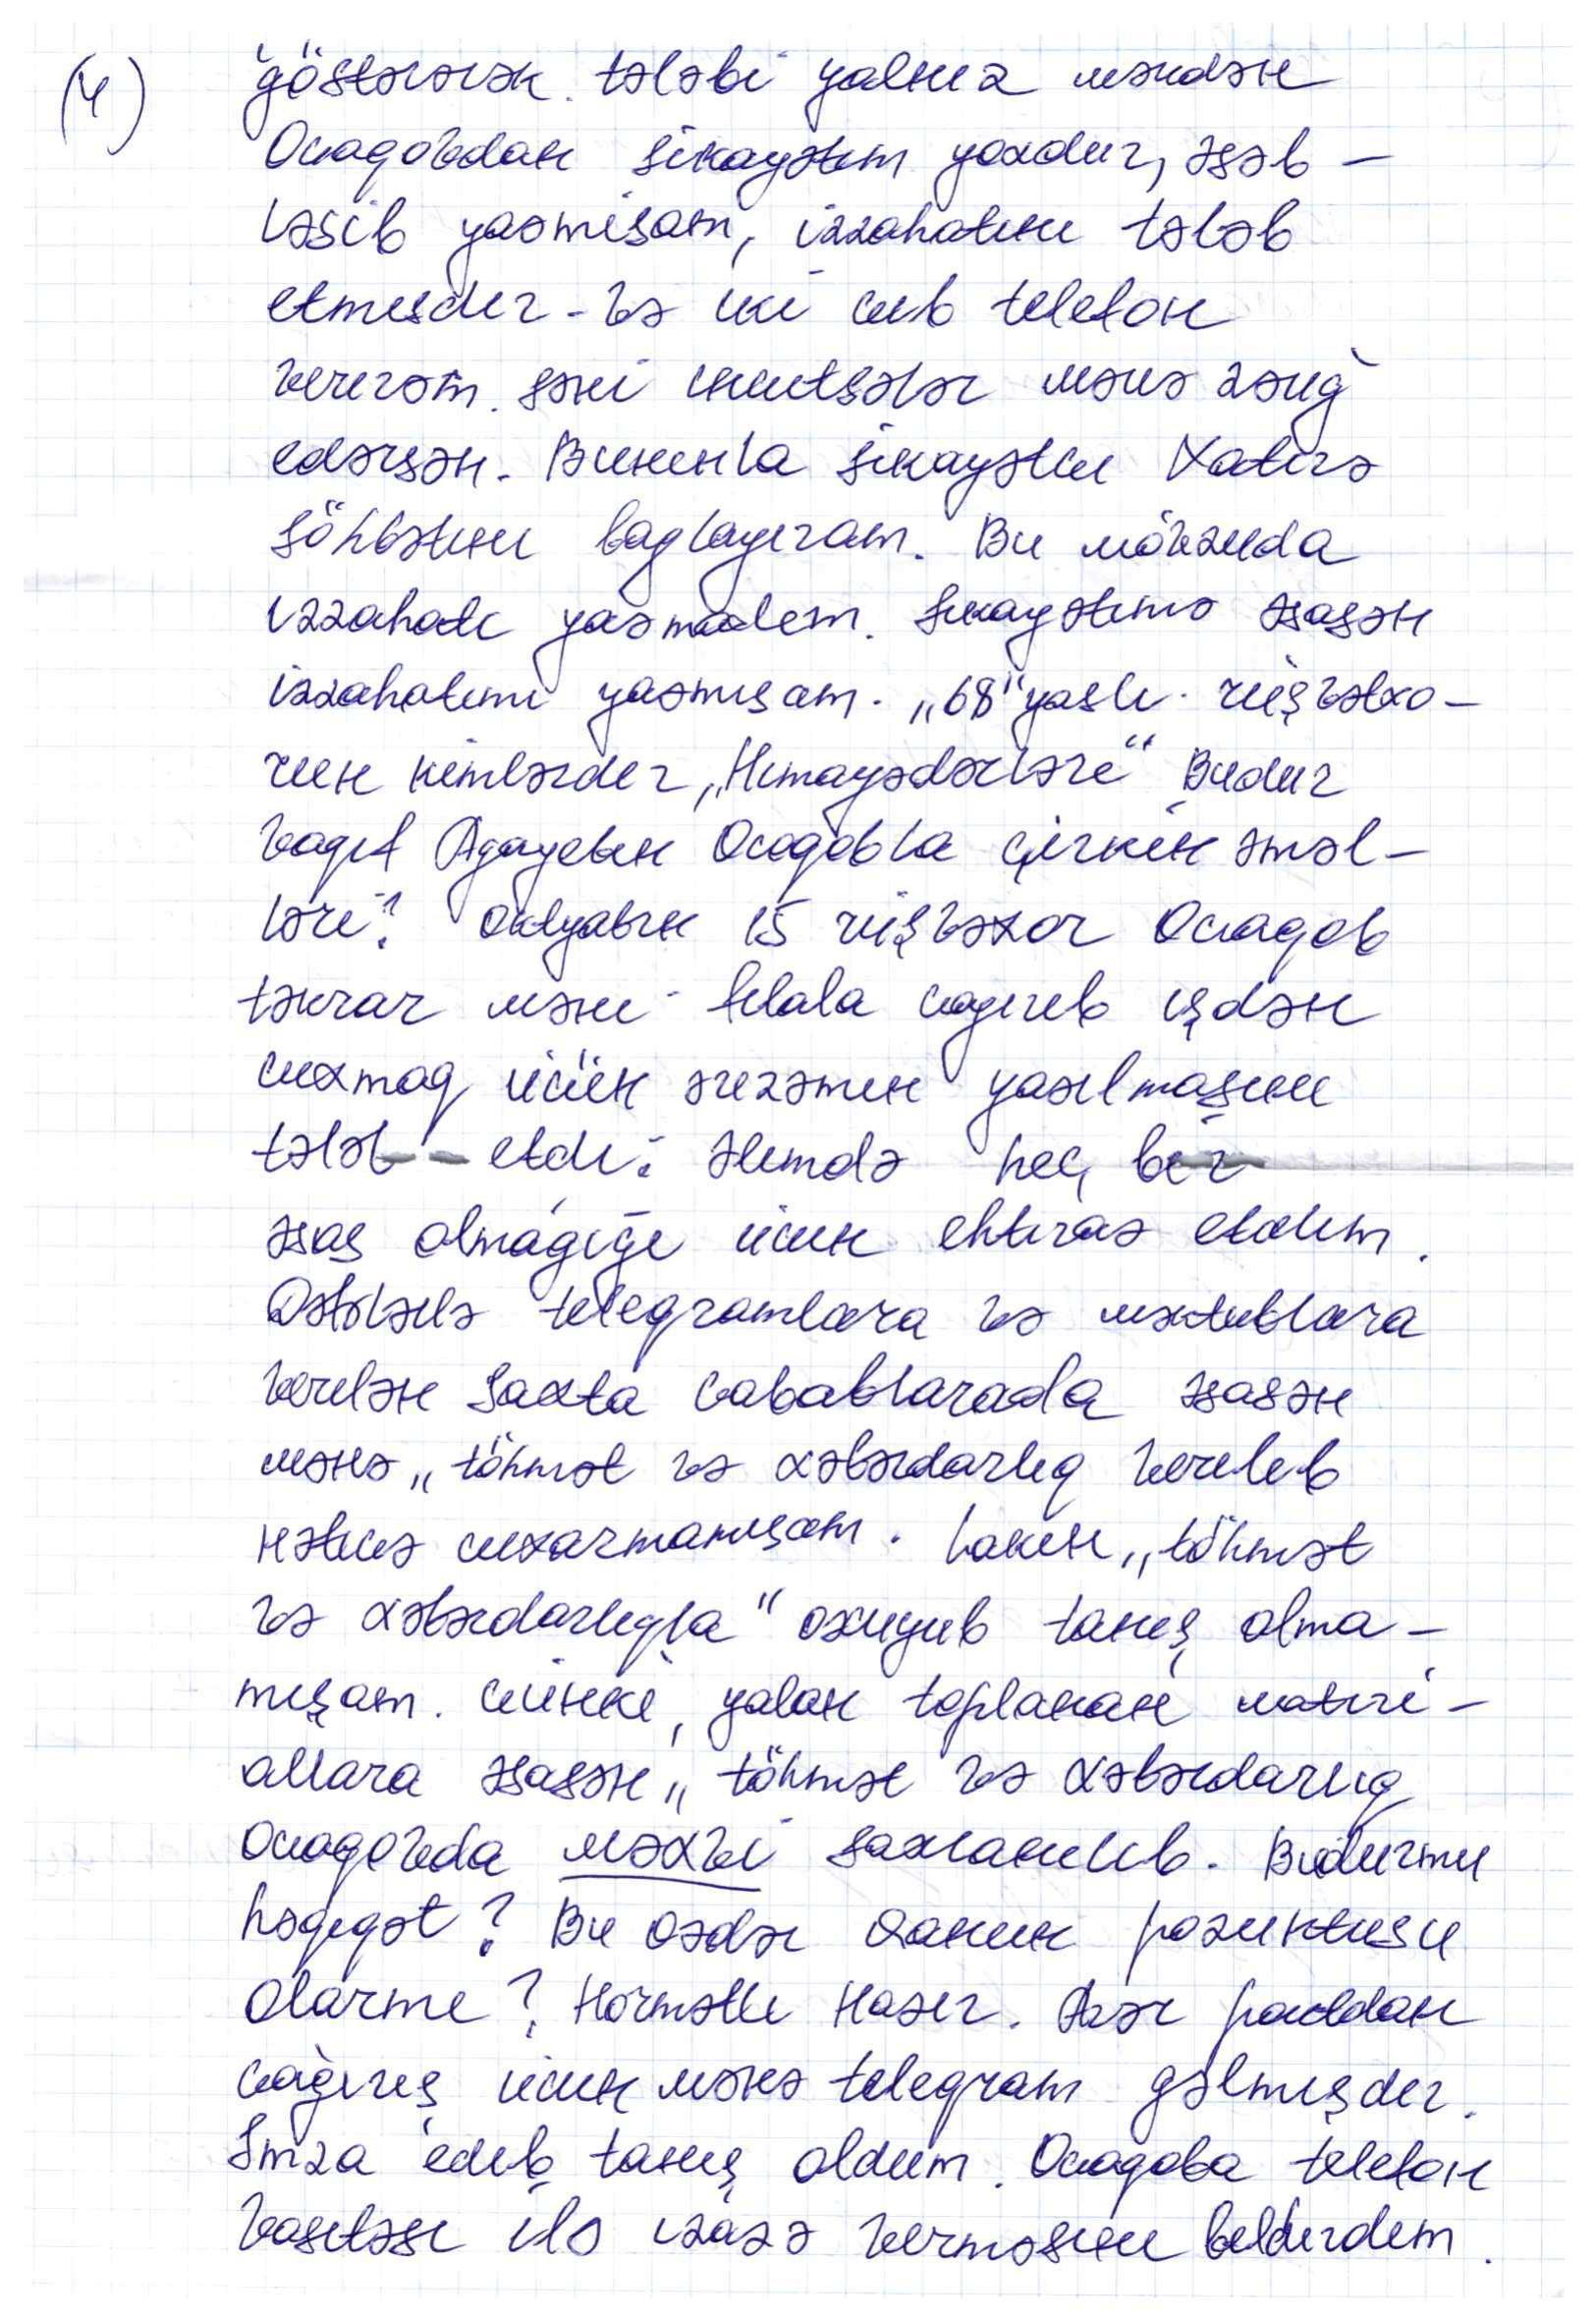 (4) göstərərək. tələbi yalnız məndən
Ocaqovdan şikayətim yoxdur, əsəb-
ləşib yazmışam, izzahatını tələb
etmişdir - və iki cüb telefon
verirəm. səni incitsələr mənə zəng
edərsən. Bununla şikayətçi Xatirə
söhbətini bağlayıram. Bu mövzuda
izzahatı yazmadım. Şikayətimə əsasən
izzahatımı yazmışam. „68" yaşlı rüşvətxo-
run kimlərdir „Himayədarları" Budur
Vaqif Ağayevin Ocaqovla çirkin əməl-
ləri? Oktyabrın 15 rüşvəxor Ocaqov
təkrar məni filala çağırıb işdən
çıxmaq üçün ərizəmin yazılmasını
tələb - etdi. Əlimdə heç bir
əsas olmağığı üçün ehtiraz etdim.
Qətblənilə telegramlara və məktublara
verilən saxta cavablarada əsasən
mənə „töhmət və xəbərdarlıq verilib
nəticə çıxarmamışam. Lakin „töhmət
və xəbərdarlıqla" oxuyub tanış olma-
mışam. Çünki, yalan toplanan matiri-
allara əsasən „töhmət və xəbərdarlıq
Ocaqovda məxvi saxlanılıb. Budurmu
həqiqət? Bu qədər qanun pozuntusu
olarmı? Hörmətli Nazir. Azər poçtdan
çağırış üçün mənə telegram gəlmişdir.
İmza edib tanış oldum. Ocaqova telefon
vasitəsi ilə icazə verməsini bildirdim.